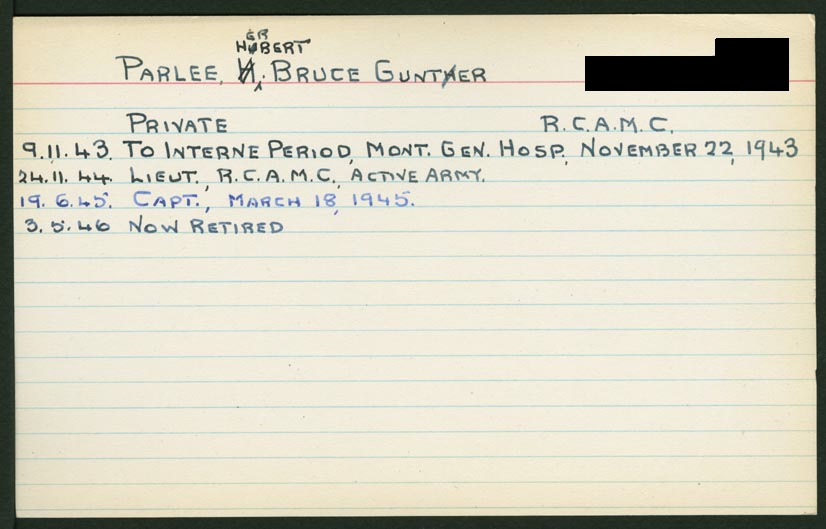 ER
HUBERT
PARLEE, H. BRUCE GUNTHER
PRIVATE R.C.A.M.C.
9.11.43. TO INTERNE PERIOD, MONT. GEN. HOSP., NOVEMBER 22, 1943
24.11.44. LIEUT., R.C.A.M.C., ACTIVE ARMY.
19.6.45. CAPT., MARCH 18, 1945.
3.5.46 NOW RETIRED